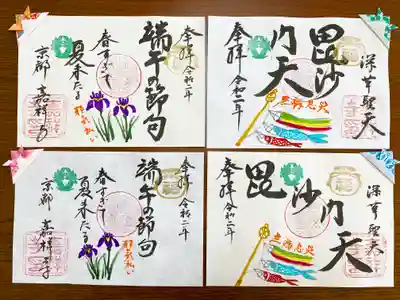 奉拝 令和二年
端午の節句
春すぎて
夏来たる
邪気払い
京都 嘉祥寺
深草聖天
毘沙門天
無病息災
奉拝 令和二年
奉拝 令和二年
端午の節句
春すぎて
夏来たる
邪気払い
京都 嘉祥寺
深草聖天
毘沙門天
無病息災
奉拝 令和二年